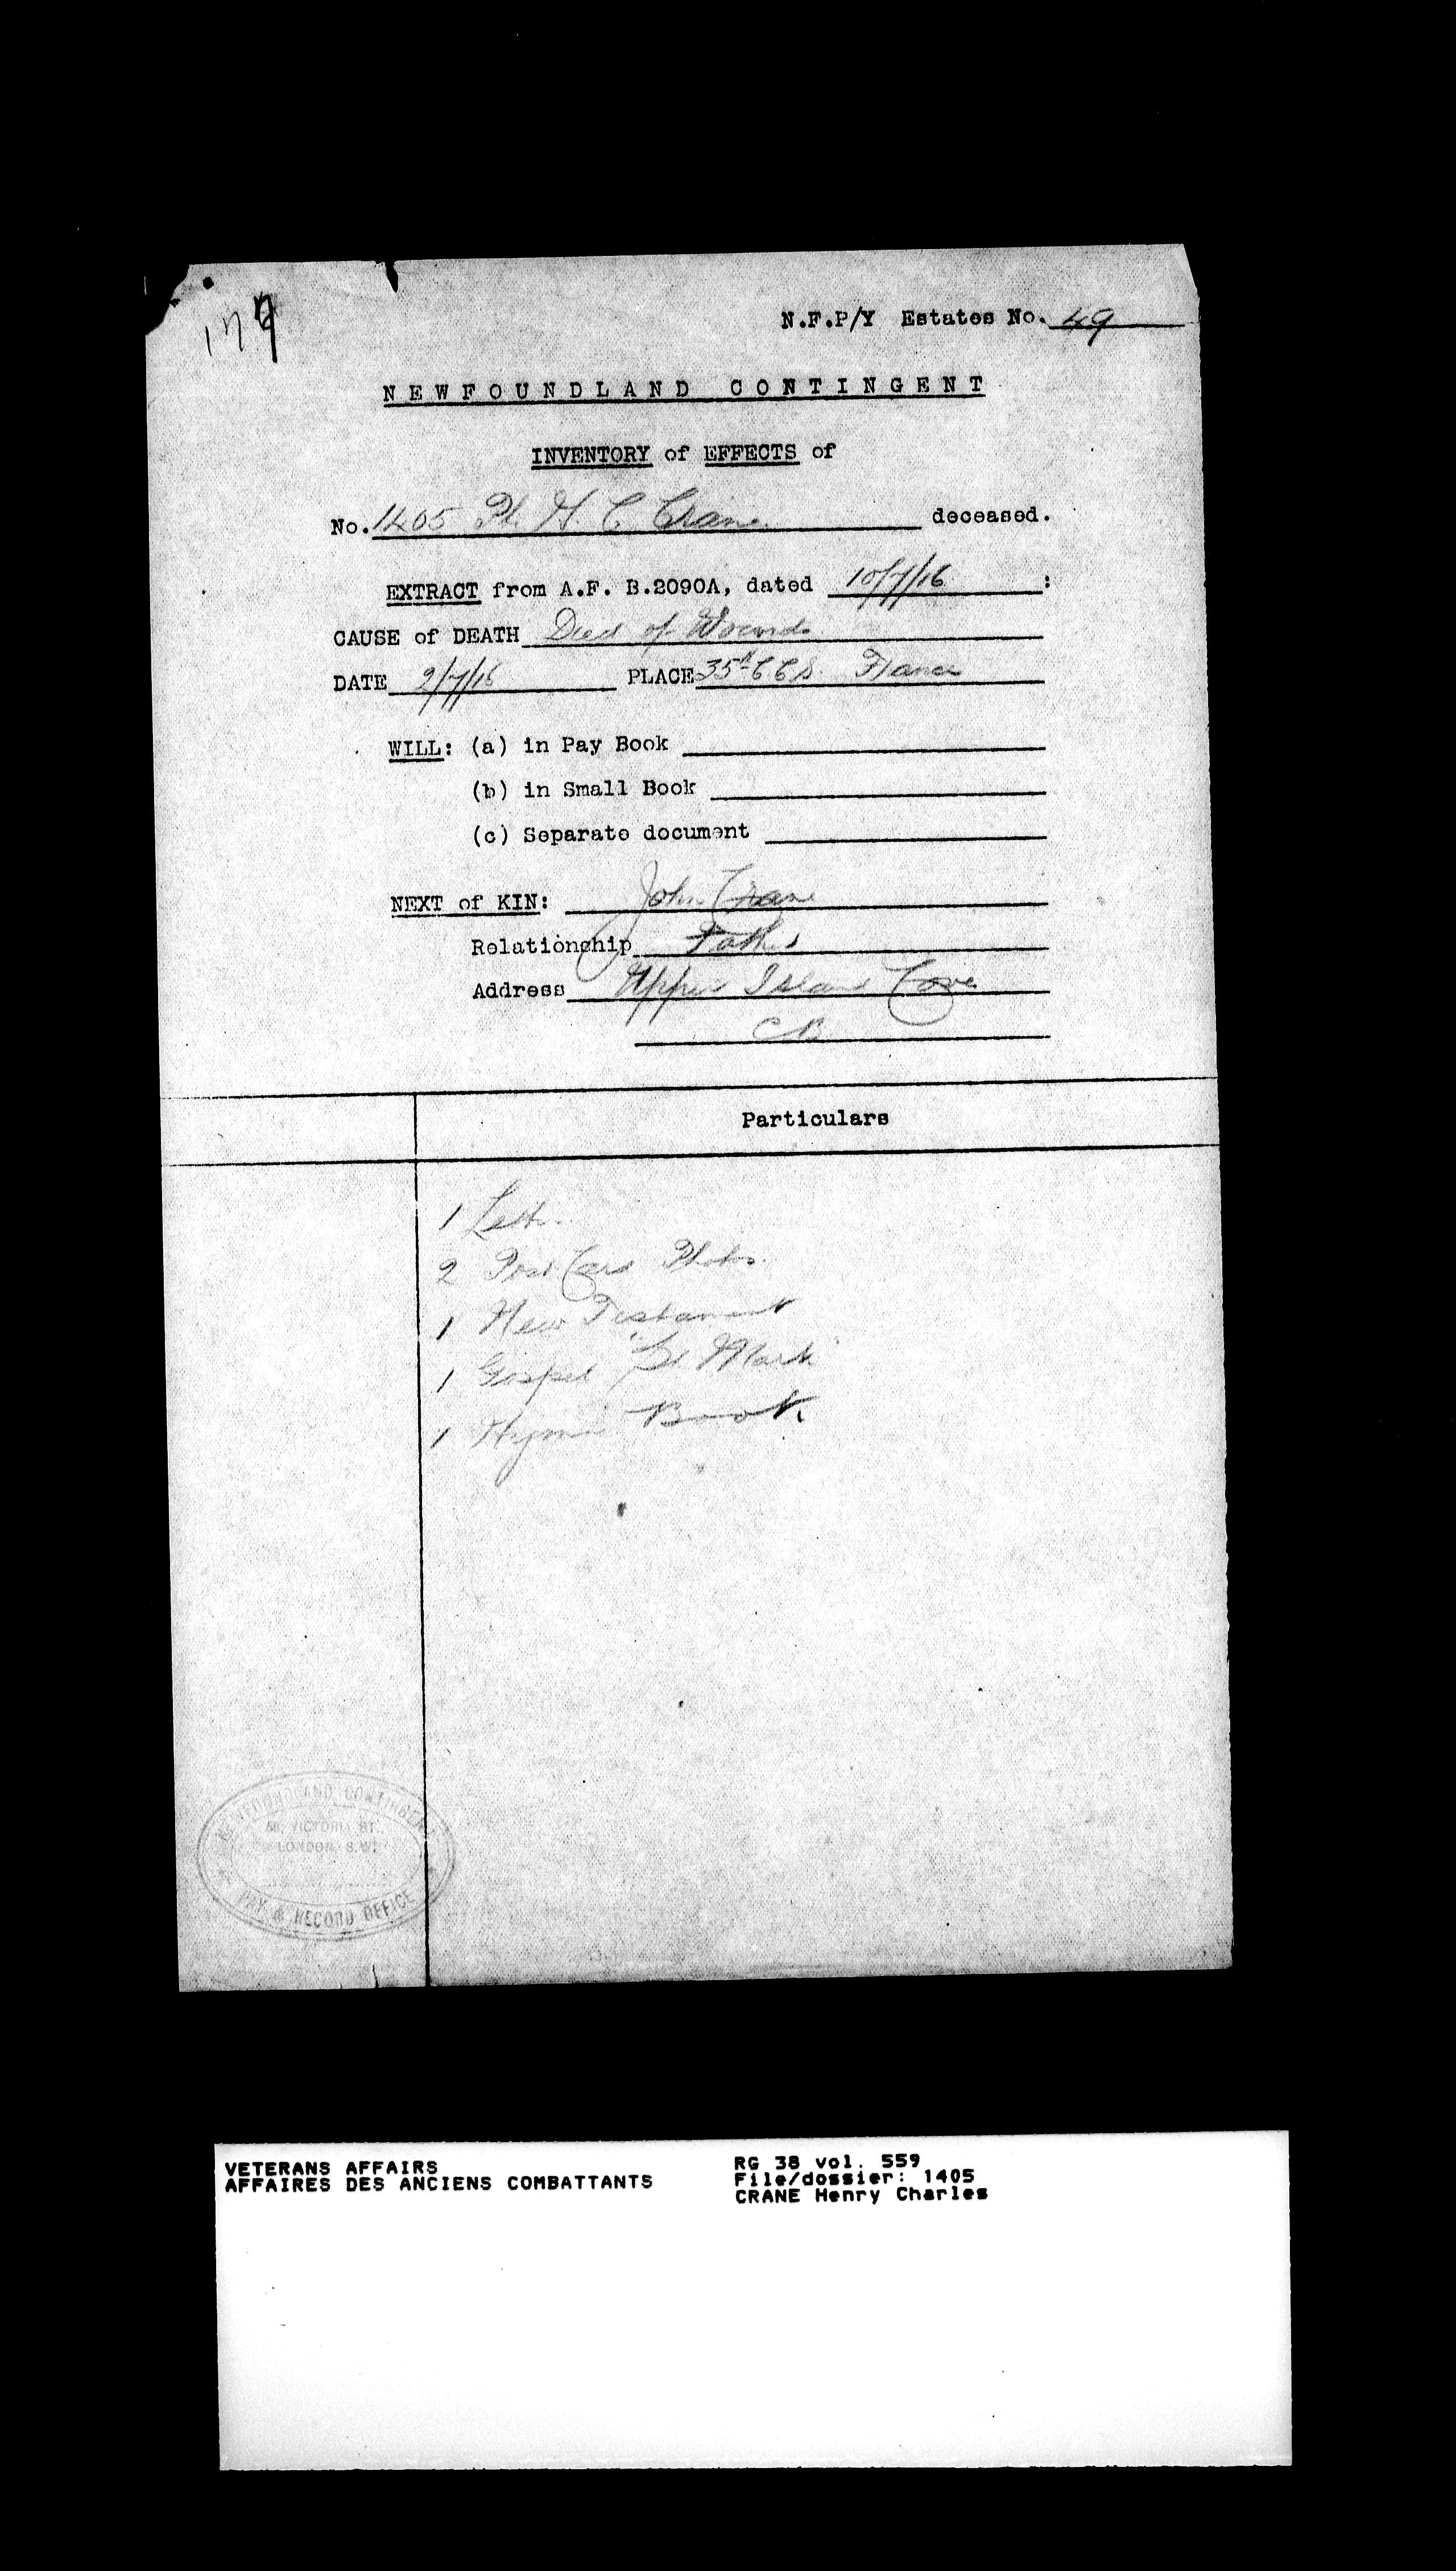 179
N.F.P/Y Estates No. 49
NEWFOUNDLAND CONTINGENT
INVENTORY of EFFECTS of
No. 1405 Pt. H. C. Crane deceased.
EXTRACT from A.F. B.2090A, dated 10/7/16 :
CAUSE of DEATH Died of Wounds
DATE 2/7/16 PLACE 35th C C S. France
WILL: (a) in Pay Book
(b) in Small Book
(c) Separate document
NEXT of KIN: John Crane
Relationship Father
Address Upper Island Cove
C B
Particulars
1 Letter
2 Post Card Photos.
1 New Testament
1 Gospel "St Mark"
1 Hymn Book
NEWFOUNDLAND CONTINGENT
58, VICTORIA ST.
LONDON, S.W.
PAY & RECORD OFFICE
VETERANS AFFAIRS
AFFAIRES DES ANCIENS COMBATTANTS
RG 38 vol. 559
File/dossier: 1405
CRANE Henry Charles